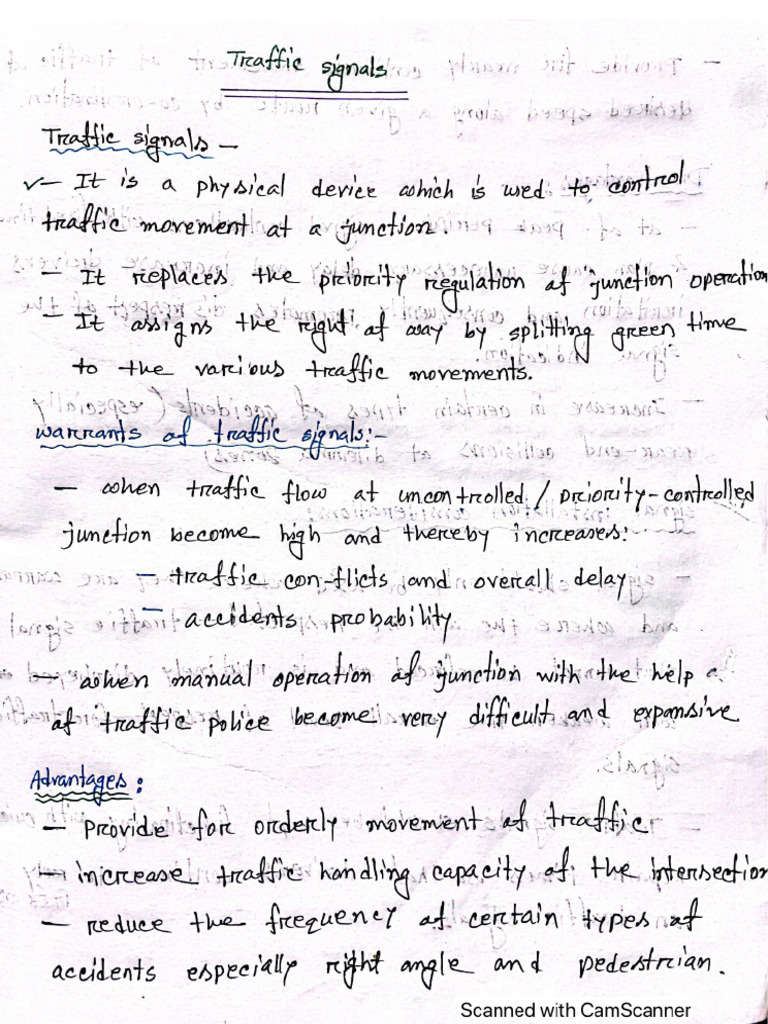 Traffic signals
Traffic signals –
✓– It is a physical device which is used to control
traffic movement at a junction.
– It replaces the priority regulation of junction operation
– It assigns the right of way by splitting green time
to the various traffic movements.
warrants of traffic signals:-
– when traffic flow at uncontrolled / priority-controlled
junction become high and thereby increases:
– traffic con-flicts and overall delay
– accidents probability
– when manual operation of junction with the help
of traffic police become very difficult and expansive
Advantages:
– Provide for orderly movement of traffic
– increase traffic handling capacity of the intersection
– reduce the frequency of certain types of
accidents especially right angle and pedestrian.
Scanned with CamScanner